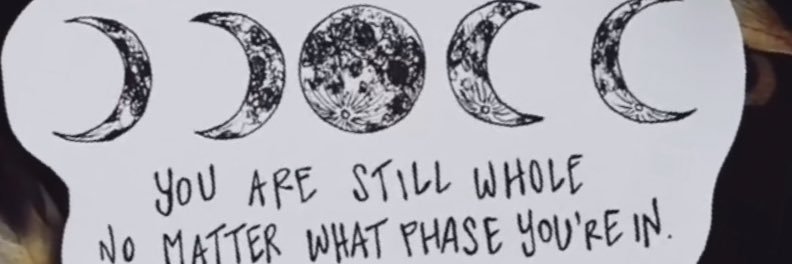 YOU ARE STILL WHOLE
NO MATTER WHAT PHASE YOU'RE IN.